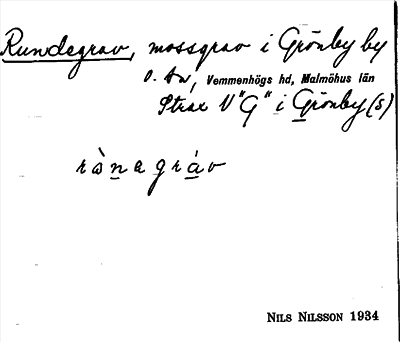 Rundegrav, mossgrav i Grönby by
o. sn, Vemmenhögs hd, Malmöhus län
Strax V "G" i Grönby (s)
rànagráv
NILS NILSSON 1934